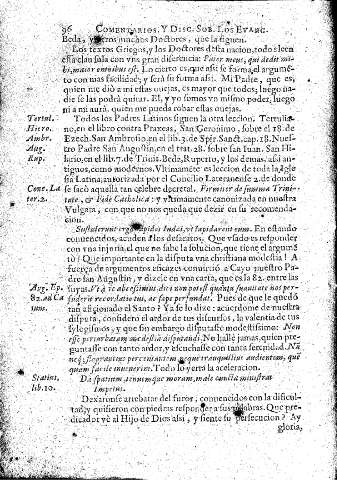 96 COMENTARIOS, Y DISC. SOB. LOS EVANC.
Beda, y otros muchos Doctores, que la siguen.
Los textos Griegos, y los Doctores desta nacion, todos leen
esta clausula con vna gran diferencia: Pater meus, qui dedit mi-
hi, maior omnibus est. Lo cierto es, que assi se forma el argumē-
to con mas facilidad; y será su forma assi. Mi Padre, que es,
quien me dió a mi estas ovejas, es mayor que todos; luego na-
die se las podrá quitar. El, y yo somos vn mismo poder, luego
ni a mi aurá, quien me pueda robar estas ovejas.
Tertul. Todos los Padres Latinos siguen la otra leccion. Tertulia-
Hiero. no, en el libro contra Praxeas, San Geronimo, sobre el 18. de
Ambr. Ezech. San Ambrosio, en el lib. 3. de Spir. Sanct. cap. 18. Nues-
Aug. tro Padre San Augustin, en el trat. 28. sobre san Iuan. San Hi-
Rup. lario, en el lib. 7. de Trinit. Beda, Ruperto, y los demas, assi an-
tiguos, como modernos. Vltimamēte es leccion de toda la Igle
sia Latina, autorizada por el Concilio Lateranense 2. de donde
Conc. La se sacò aquella tan celebre decretal. Firmiter de summa Trini-
ter. 2. tate, & Fide Catholica: y vltimamente canonizada en nuestra
Vulgata, con que no nos queda que dezir en su recomenda-
cion.
Sustulerunt ergo lapides Iudai, vt lapidarent eum. En estando
convencidos, acuden a los desacatos. Que vsado es responder
con vna injuria, el que no sabe la solucion, que tiene el argumē
to! Que importante en la disputa vna christiana modestia! A
fuerça de argumentos eficazes convirtió a Cayo nuestro Pa-
dre San Augustin, y dizele en vna carta, que es la 82. entre las
Aug. Ep. suyas. Vis à te abesse nimi. dici non potest quantū suauitate nos per-
82. ad Ca fuderit recordatio tui, ac sæpe perfundat. Pues de que le quedò
ium. tan aficionado el Santo? Ya se lo dize: acuerdome de nuestra
disputa, considero el ardor de tus discursos, la valentia de tus
sylogismos, y que sin embargo disputaste modestissimo: Non
esse perturbatam modestia disputandi. No hallè jamas, quien pre-
guntasse con tanto ardor, y escuchasse con tanta serenidad. Nā
neque flagrantius percunctantem neque tranquillius audientem, quē
quam facile inuenerim. Todo lo yerra la aceleracion.
Statius, Da spatium, tenuimque moram, male cuncta ministrat
lib. 10. Impetus.
Dexaronse arrebatar del furor, convencidos con la dificul-
tad, y quisieron con piedras responder a sus palabras. Que pre-
dicador vè al Hijo de Dios assi, y siente su persecucion? Ay
gloria,